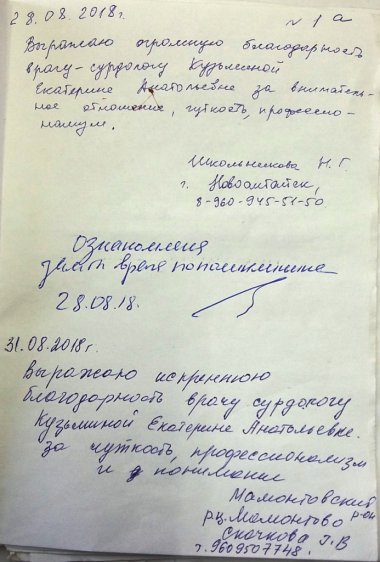 28.08.2018г. № 1 а
Выражаю огромную благодарность
врачу-сурдологу Кузьминой
Екатерине Анатольевне за вниматель-
ное отношение, чуткость, професси-
нализм.
Школьникова Н. Г.
г. Новоалтайск,
8-960-945-51-50
Ознакомлена
28.08.18.
31.08.2018г.
Выражаю искреннюю
благодарность врачу сурдологу
Кузьминой Екатерине Анатольевне.
за чуткость, профессионализм
и понимание
Мамонтовский р-он
р.ц. Мамонтово
Скачкова Г. В
т. 9609507748.